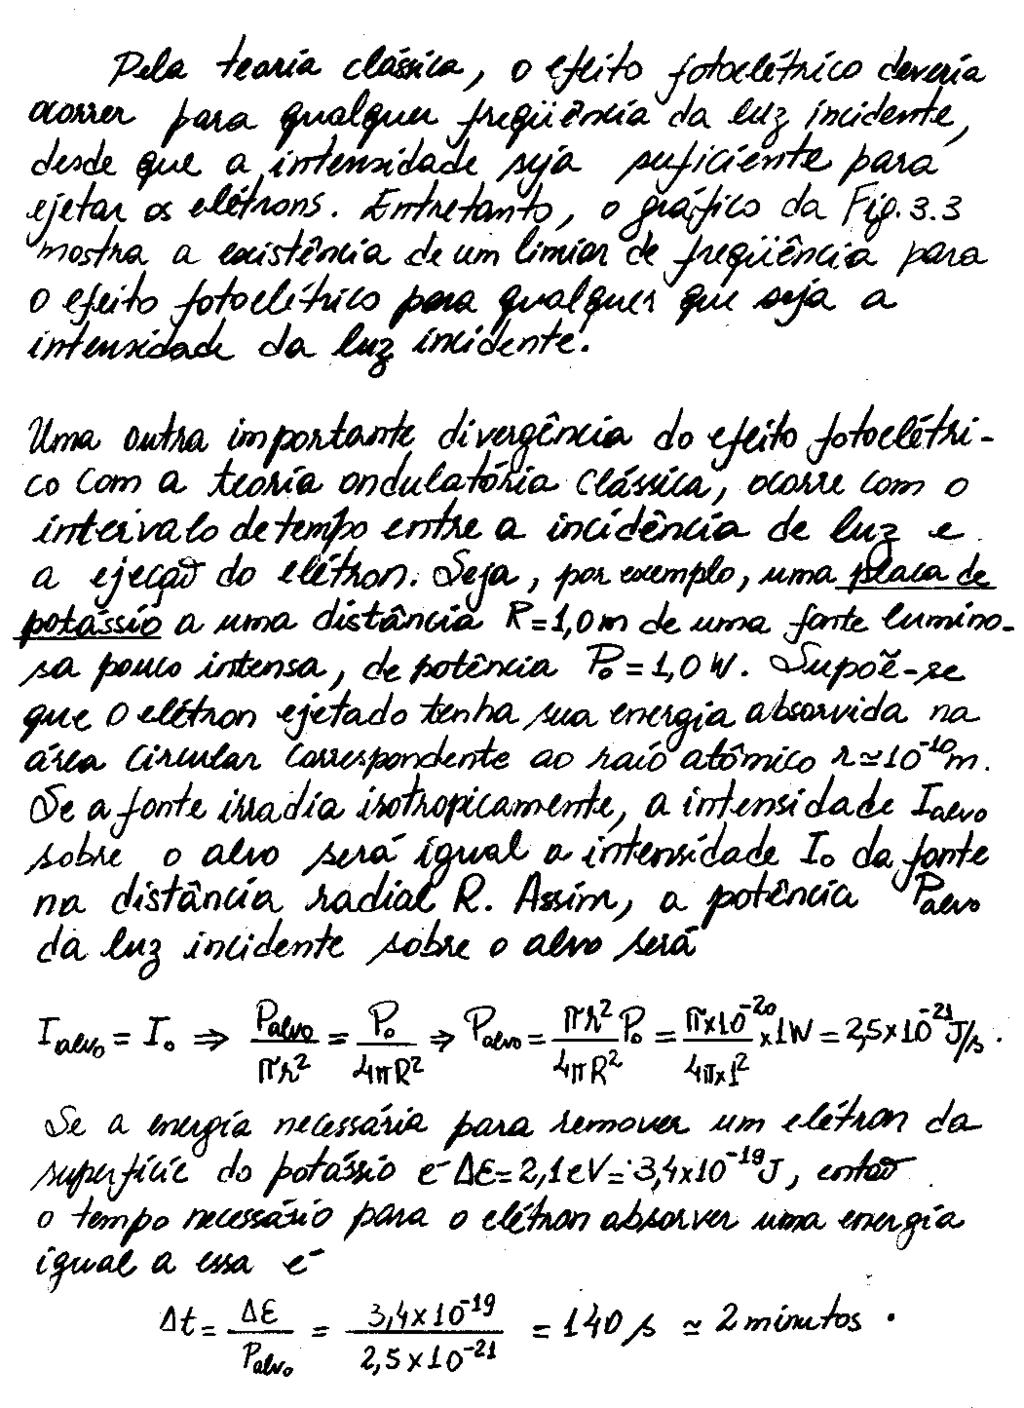 Pela teoria clássica, o efeito fotoelétrico deveria
ocorrer para qualquer freqüência da luz incidente,
desde que a intensidade seja suficiente para
ejetar os elétrons. Entretanto, o gráfico da Fig. 3.3
mostra a existência de um limiar de freqüência para
o efeito fotoelétrico para qualquer que seja a
intensidade da luz incidente.
Uma outra importante divergência do efeito fotoelétri-
co com a teoria ondulatória clássica, ocorre com o
intervalo de tempo entre a incidência de luz e
a ejeção do elétron. Seja, por exemplo, uma placa de
potássio a uma distância R=1,0m de uma fonte lumino-
sa pouco intensa, de potência P₀=1,0W. Supõe-se
que o elétron ejetado tenha sua energia absorvida na
área circular correspondente ao raio atômico r≃10⁻¹⁰m.
Se a fonte irradia isotropicamente, a intensidade I_alvo
sobre o alvo será igual a intensidade I₀ da fonte
na distância radial R. Assim, a potência P_alvo
da luz incidente sobre o alvo será
I_alvo = I₀ ⇒ P_alvo/πr² = P₀/4πR² ⇒ P_alvo = πr²/4πR² P₀ = π×10⁻²⁰/4π×1² ×1W = 2,5×10⁻²¹ J/s.
Se a energia necessária para remover um elétron da
superfície do potássio é Δε=2,1eV=3,4×10⁻¹⁹J, então
o tempo necessário para o elétron absorver uma energia
igual a essa é
Δt = Δε/P_alvo = 3,4×10⁻¹⁹/2,5×10⁻²¹ = 140 s ≃ 2 minutos.